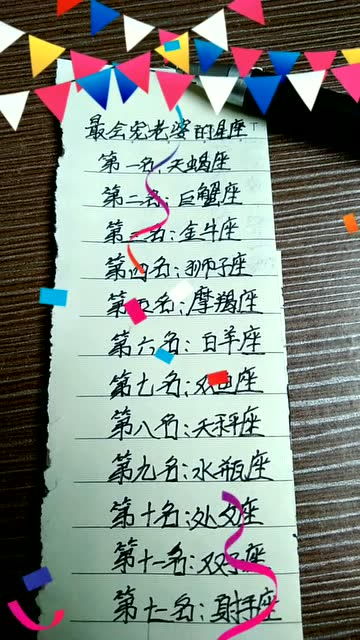 最会宠老婆的星座
第一名:天蝎座
第二名:巨蟹座
第三名:金牛座
第四名:狮子座
第五名:摩羯座
第六名:白羊座
第七名:双鱼座
第八名:天秤座
第九名:水瓶座
第十名:处女座
第十一名:双子座
第十二名:射手座